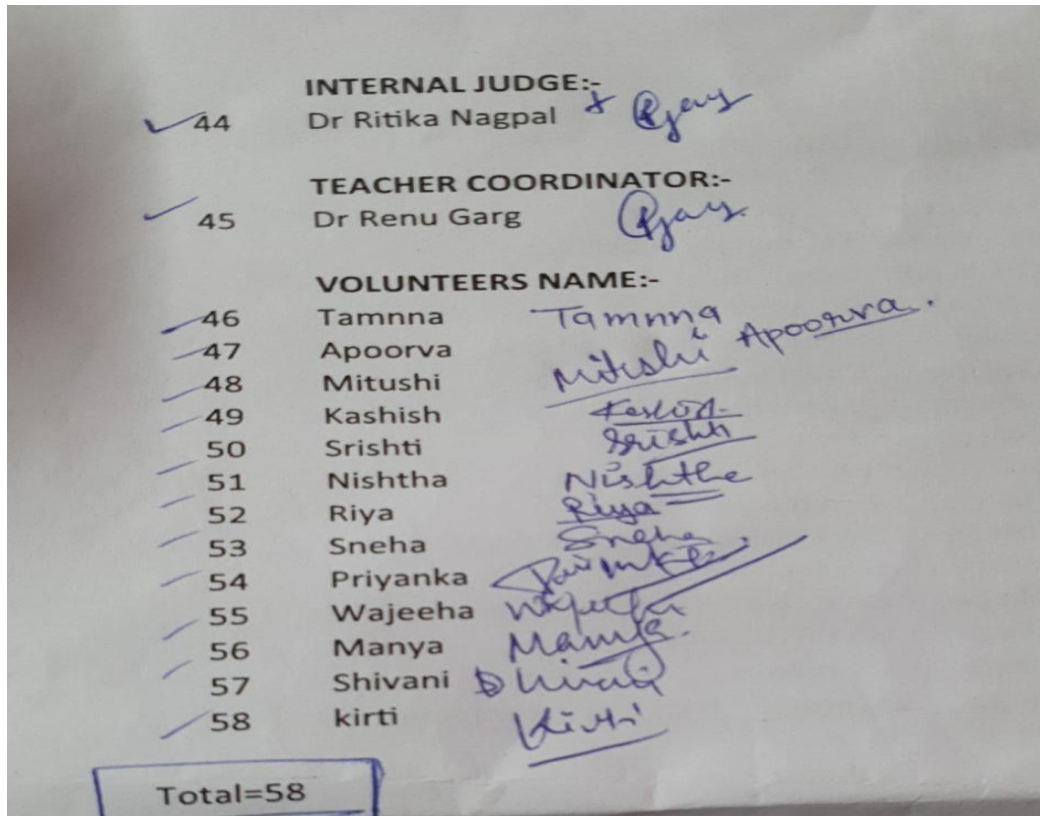 INTERNAL JUDGE:-
44 Dr Ritika Nagpal
TEACHER COORDINATOR:-
45 Dr Renu Garg
VOLUNTEERS NAME:-
46 Tamnna Tamnna
47 Apoorva Apoorva.
48 Mitushi Mitushi
49 Kashish
50 Srishti Srishti
51 Nishtha Nishthe
52 Riya Riya
53 Sneha Sneha
54 Priyanka
55 Wajeeha
56 Manya Manya.
57 Shivani
58 kirti Kirti
Total=58